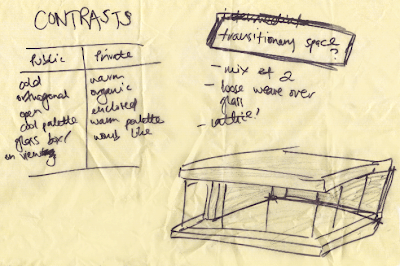 CONTRASTS
Public Private
cold warm
orthogonal organic
open enclosed
cool palette warm palette
glass box/
womb like
transitionary space
?
- mix of 2
- loose weave over
glass
- lattice?